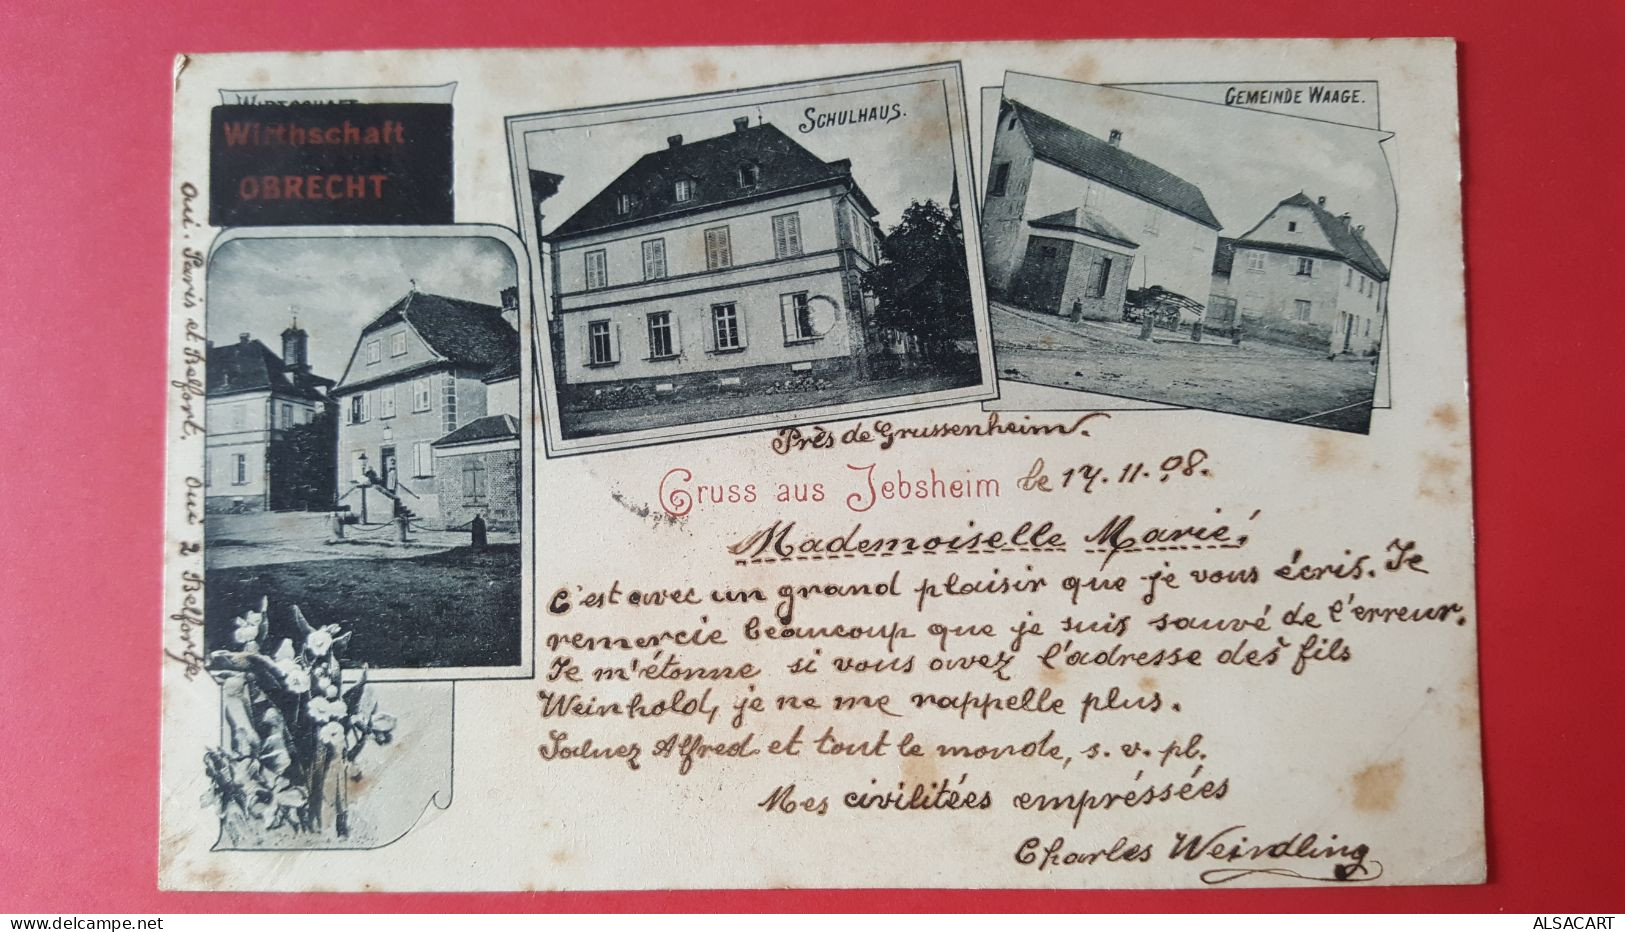 WIRTSCHAFT
Wirthschaft
OBRECHT
SCHULHAUS.
GEMEINDE WAAGE.
Près de Grussenheim.
Gruss aus Jebsheim le 17. 11. 98.
Mademoiselle Marie!
C'est avec un grand plaisir que je vous écris. Je
remercie beaucoup que je suis sauvé de l'erreur.
Je m'étonne si vous avez l'adresse des fils
Weinhold, je ne me rappelle plus.
Saluez Alfred et tout le monde, s. v. pl.
Mes civilitées empréssées
Charles Weindling
Oui. Paris et Belfort. Oui 2 Belforts
ALSACART